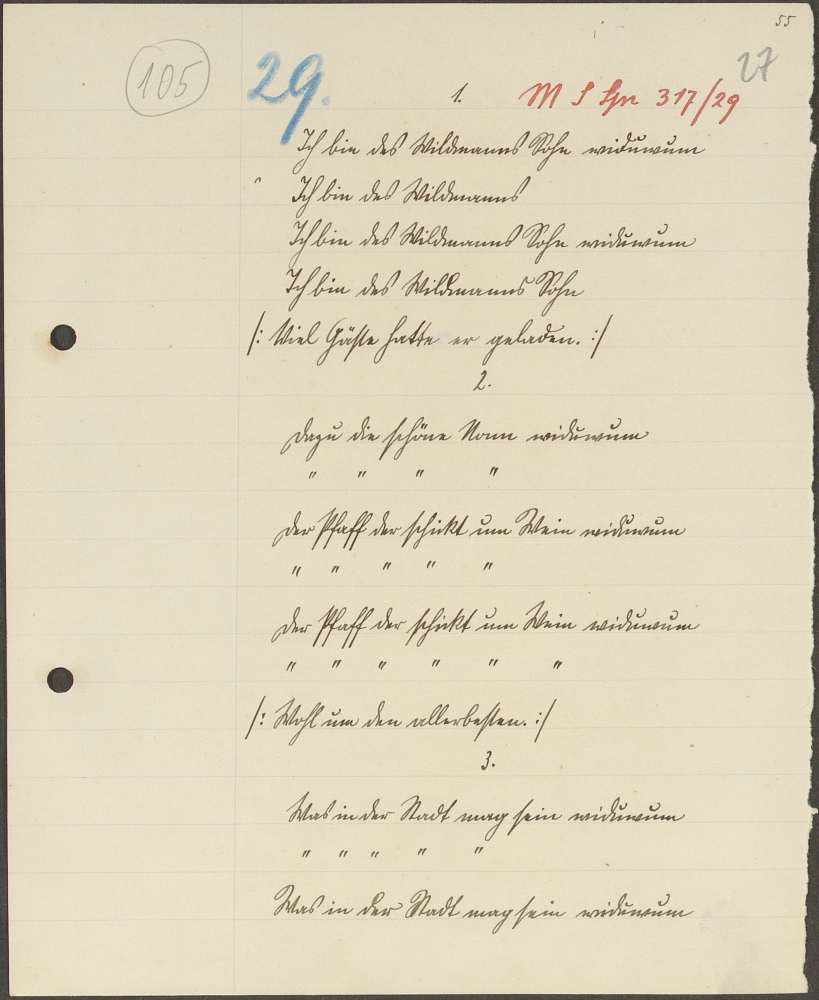 55
105
29.
27
1.
M S Spr 317/29
Ich bin des Wildmanns Sohn widuwum
" Ich bin des Wildmanns
Ich bin des Wildmanns Sohn widuwum
Ich bin des Wildmanns Sohn
/: Viel Gäste hatte er geladen. :/
2.
Dazu die schöne Nonn widuwum
" " " "
Der Pfaff der schickt um Wein widuwum
" " " " "
Der Pfaff der schickt um Wein widuwum
" " " " " "
/: Wohl um den allerbesten. :/
3.
Was in der Stadt mag sein widuwum
" " " " "
Was in der Stadt mag sein widuwum